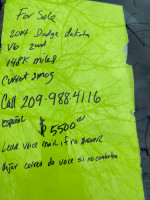 For Sale
2004 Dodge dakota
V6 2wd
148K miles
Current smog
Call 209-988-4116
ESPAÑOL
$5500.00
Leave voice mail if no answer
dejar correo de voce si no contesta